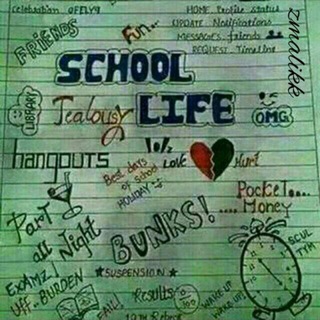 Celebration
HOME Profile Status
UPDATE Notifications
MESSAGES friends
REQUEST Timeline
zmalikk
FRIENDS
Fun...
SCHOOL
LIFE
LIBRARY
Jealousy
OMG
hangouts
LOVE
Hurt
Best days
of School
HOLIDAY
Pocket....
.... Money
Part
all Night
BUNKS!
SUSPENSION
EXAMZ
Uff.. BURDEN
FAIL!
Results
WAKE UP
WAKE UP!